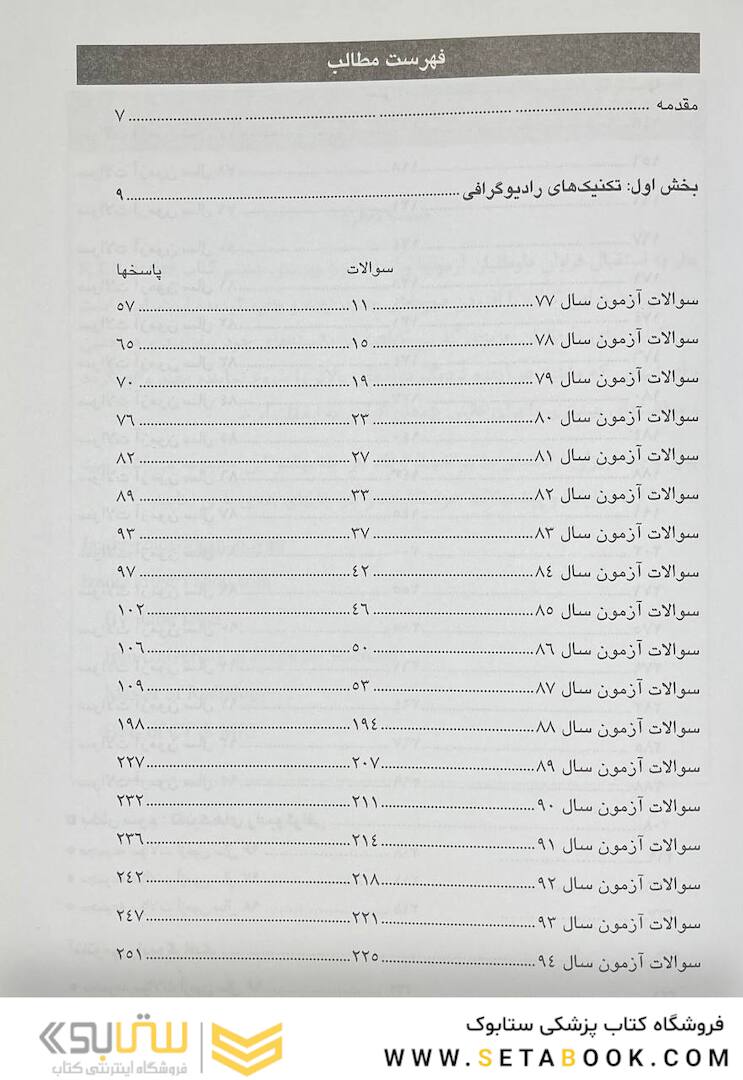 فهرست مطالب
مقدمه ........ ۷
بخش اول: تکنیک‌های رادیوگرافی ........ ۹
سوالات پاسخها
سوالات آزمون سال ۷۷ ........ ۱۱ ........ ۵۷
سوالات آزمون سال ۷۸ ........ ۱۵ ........ ٦٥
سوالات آزمون سال ۷۹ ........ ۱۹ ........ ۷۰
سوالات آزمون سال ۸۰ ........ ۲۳ ........ ۷٦
سوالات آزمون سال ۸۱ ........ ۲۷ ........ ۸۲
سوالات آزمون سال ۸۲ ........ ۳۳ ........ ۸۹
سوالات آزمون سال ۸۳ ........ ۳۷ ........ ۹۳
سوالات آزمون سال ۸٤ ........ ٤۲ ........ ۹۷
سوالات آزمون سال ۸٥ ........ ٤٦ ........ ۱۰۲
سوالات آزمون سال ۸٦ ........ ٥۰ ........ ۱۰٦
سوالات آزمون سال ۸۷ ........ ٥۳ ........ ۱۰۹
سوالات آزمون سال ۸۸ ........ ۱۹٤ ........ ۱۹۸
سوالات آزمون سال ۸۹ ........ ۲۰۷ ........ ۲۲۷
سوالات آزمون سال ۹۰ ........ ۲۱۱ ........ ۲۳۲
سوالات آزمون سال ۹۱ ........ ۲۱٤ ........ ۲۳٦
سوالات آزمون سال ۹۲ ........ ۲۱۸ ........ ۲٤۲
سوالات آزمون سال ۹۳ ........ ۲۲۱ ........ ۲٤۷
سوالات آزمون سال ۹٤ ........ ۲۲٥ ........ ۲٥۱
فروشگاه کتاب پزشکی ستابوک
WWW.SETABOOK.COM
ستابوک
فروشگاه اینترنتی کتاب